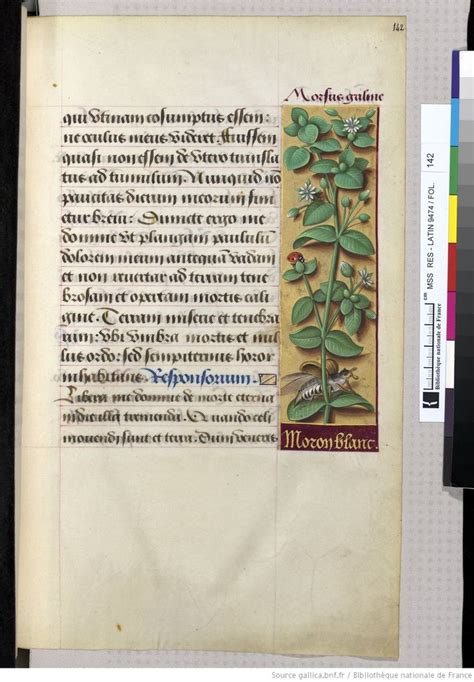 142
Morsus galine
qui utinam cosumptus essem:
ne oculus meus videret. Fuissem
quasi non essem de utero transla
tus ad tumulum. Nunquid no
paucitas dierum meorum fini
etur brevi: Dimitte ergo me
domine ut plangam paululu
dolorem meum antequa vadam
et non revertar ad terram tene
brosam et opertam mortis cali
gine. Terram miserie et tenebra
rum: ubi umbra mortis et nul
lus ordo: sed sempiternus horror
inhabitans. Responsorium.
Libera me domine de morte eterna
in die illa tremenda. Quando celi
movendi sunt et terra. Dum veneris
Moron blanc.
MSS RES - LATIN 9474 / FOL. 142
cm
Bibliothèque nationale de France
Source gallica.bnf.fr / Bibliothèque nationale de France